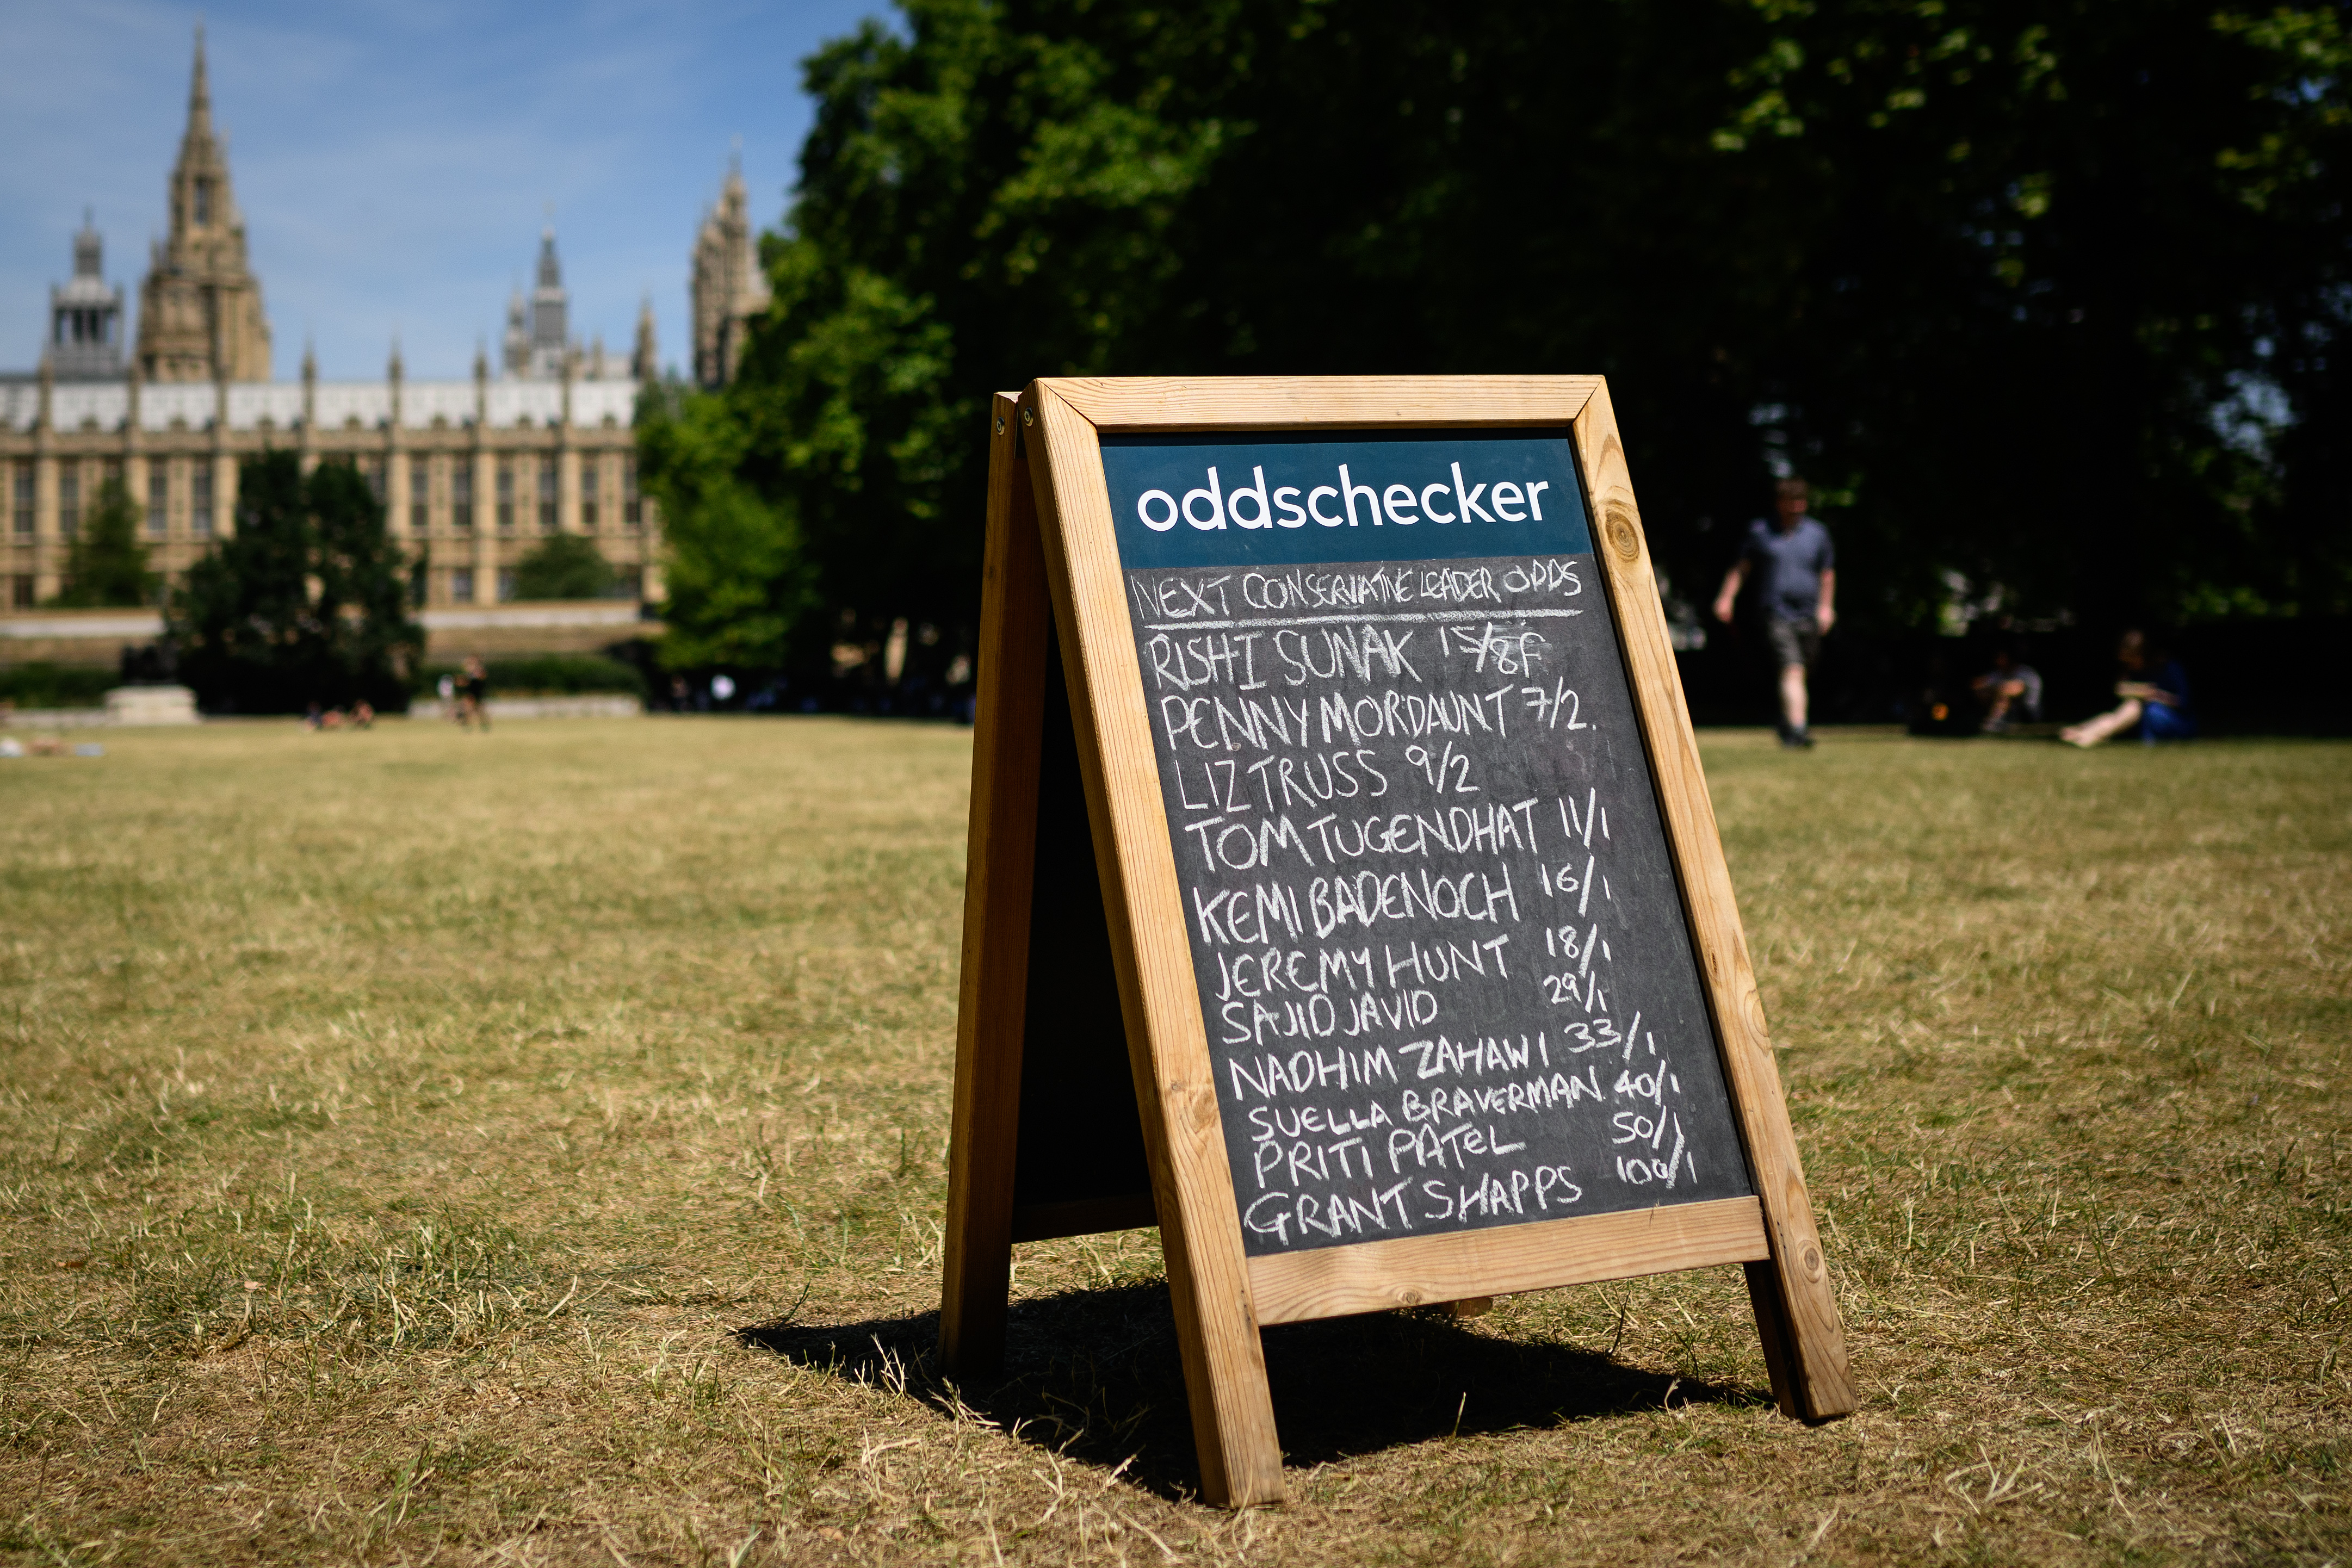 oddschecker
NEXT CONSERVATIVE LEADER ODDS
RISHI SUNAK 15/8F
PENNY MORDAUNT 7/2.
LIZ TRUSS 9/2
TOM TUGENDHAT 11/1
KEMI BADENOCH 16/1
JEREMY HUNT 18/1
SAJID JAVID 29/1
NADHIM ZAHAWI 33/1
SUELLA BRAVERMAN 40/1
PRITI PATEL 50/1
GRANT SHAPPS 100/1